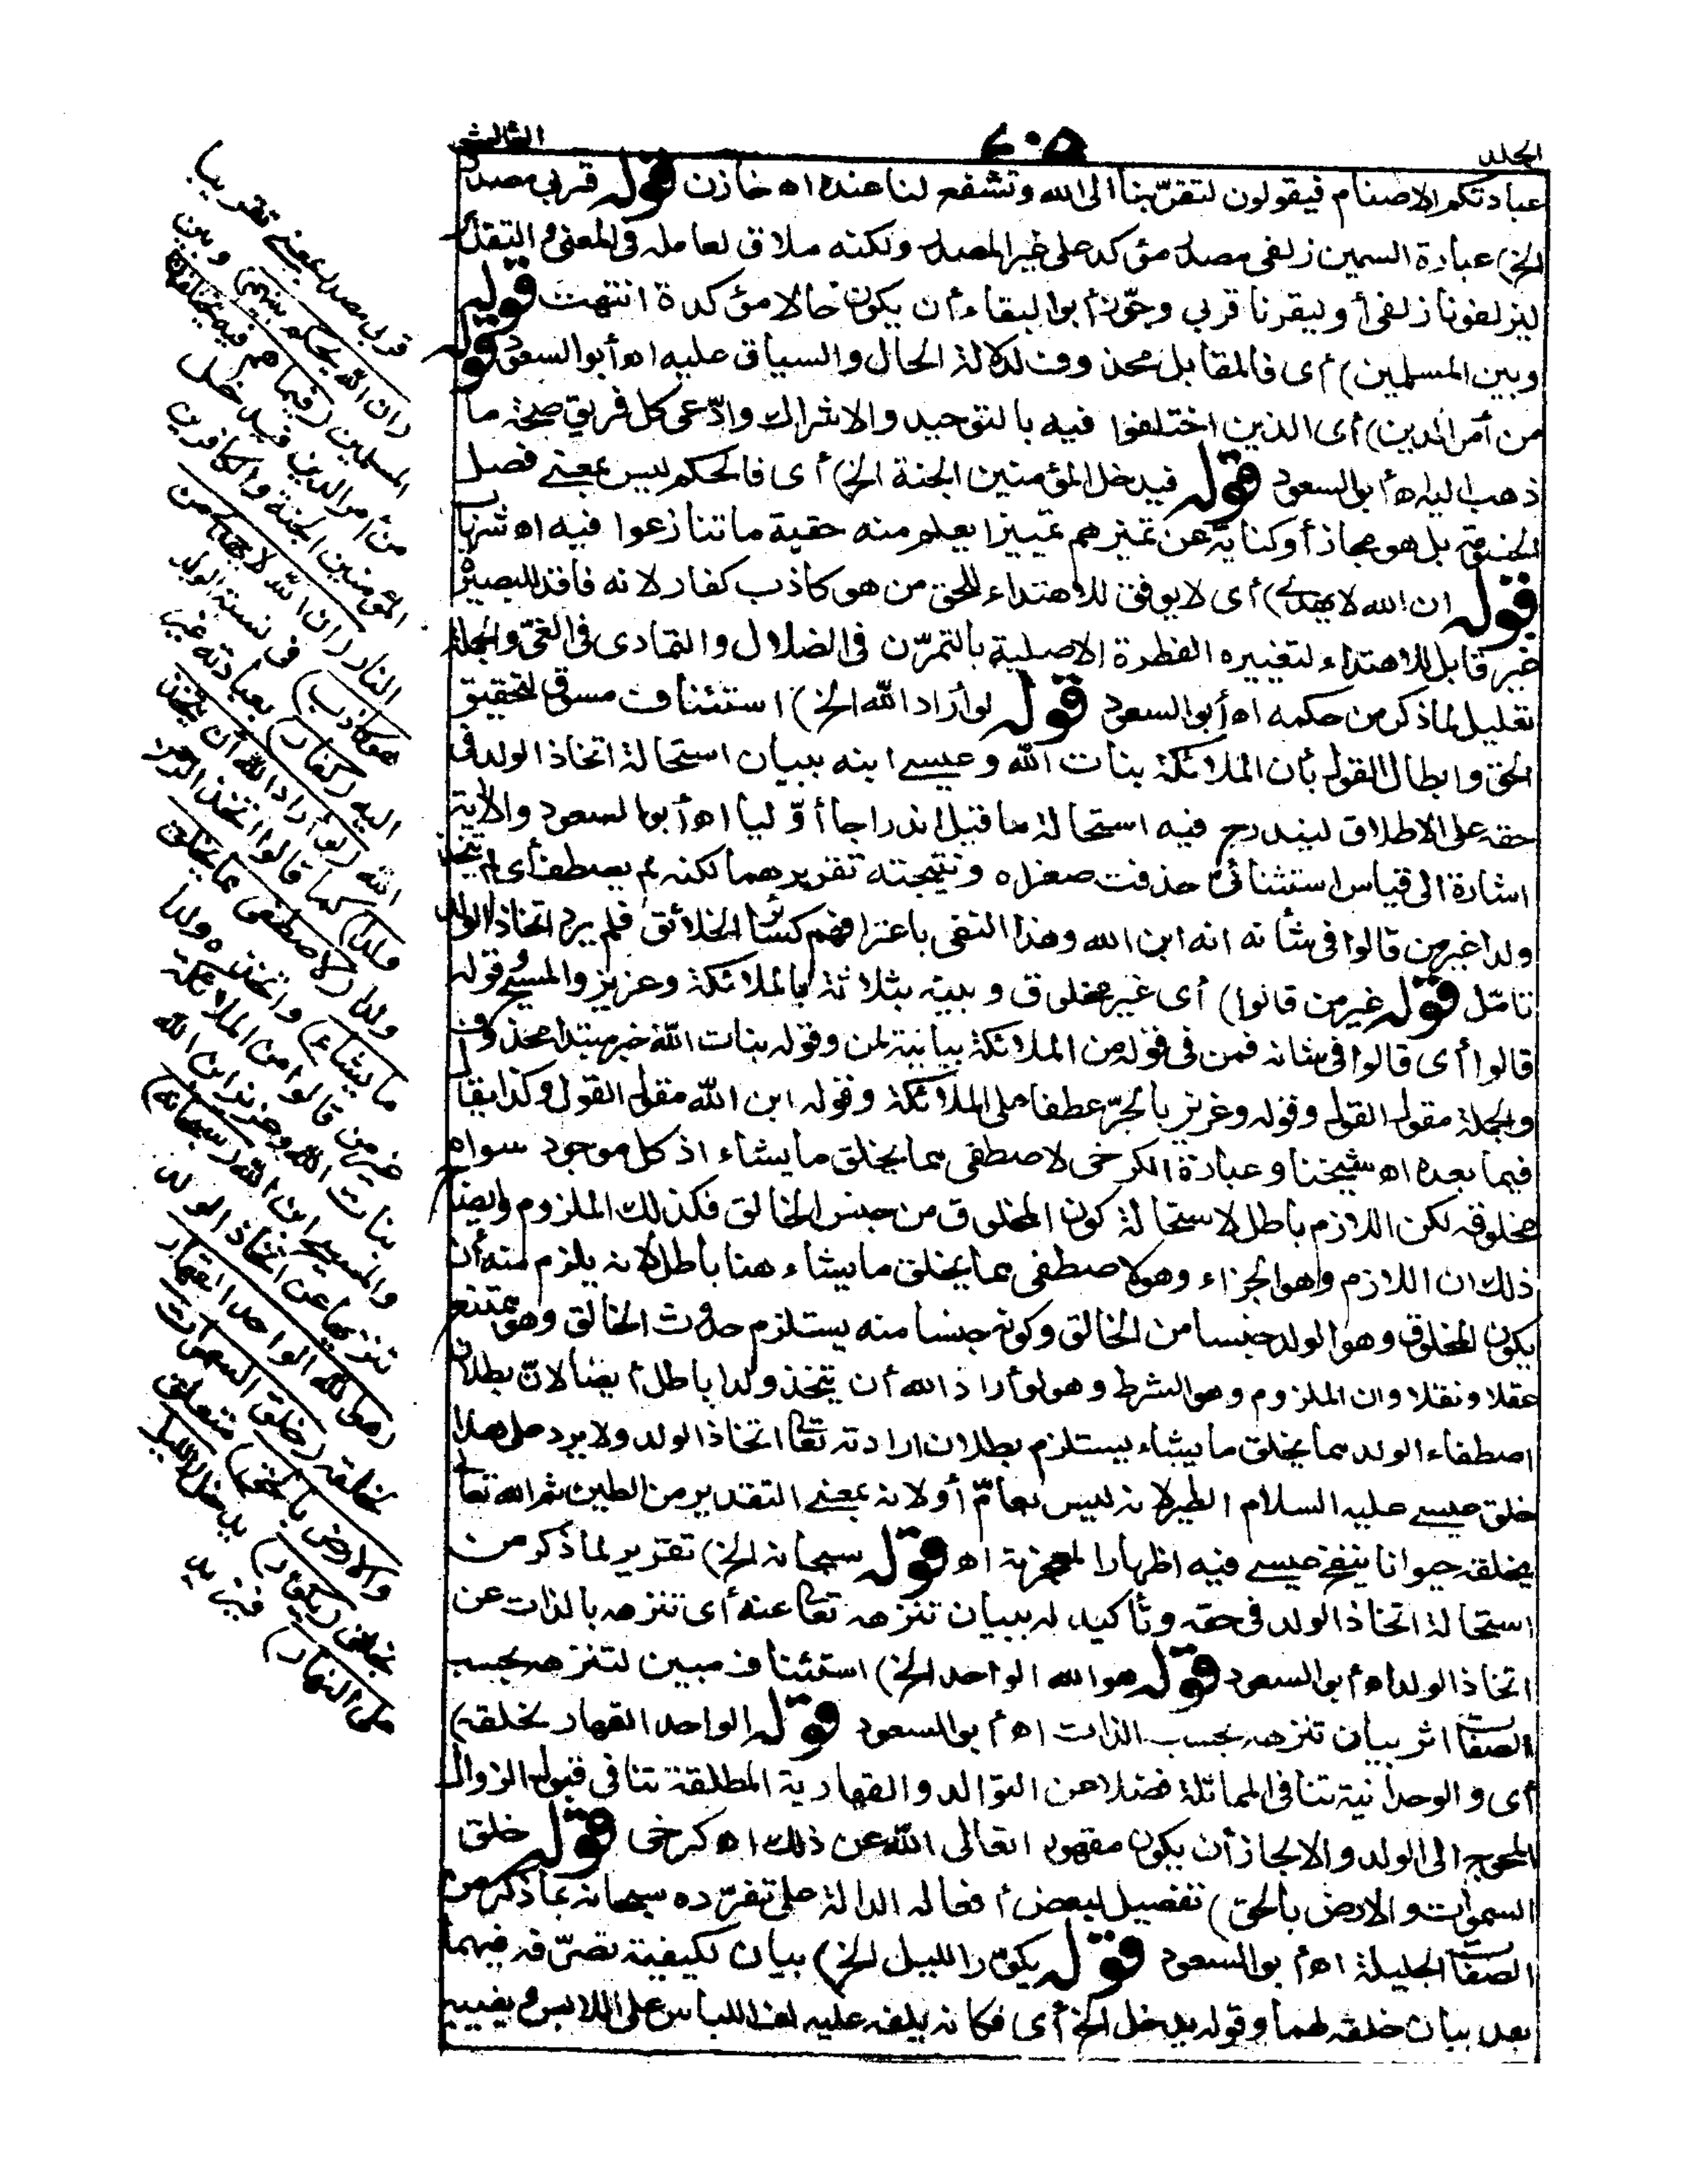 الجلد
٤٠٥
الثالث
عبادتكم الاصنام فيقولون لتقرّبنا الى الله وتشفع لنا عنده اه خازن قوله قربى مصدر
الخ) عبارة السمين زلفى مصدر مؤكد على غير المصدر ولكنه ملاق لعامله فى المعنى والتقدير
ليزلفونا زلفى أو ليقربونا قربى وجوّز أبو البقاء أن يكون حالا مؤكدة انتهت قوله
وبين المسلمين) أى فالمقابل محذوف لدلالة الحال والسياق عليه اه أبو السعود قوله
من أمر الدين) أى الذين اختلفوا فيه بالتوحيد والاشراك وادّعى كل فريق صحة ما
ذهب اليه اه أبو السعود قوله فيدخل المؤمنين الجنة الخ) أى فالحكم ليس بمعنى فصل
الخصومة بل هو مجاز أو كناية عن تميزهم تمييزا يعلم منه حقية ما تنازعوا فيه اه شهاب
قوله ان الله لا يهدى) أى لا يوفق للاهتداء للحق من هو كاذب كفار لانه فاقد للبصيرة
غير قابل للاهتداء لتغييره الفطرة الاصلية بالتمرّن فى الضلال والتمادى فى الغىّ والجملة
تعليل لما ذكر من حكمه اه أبو السعود قوله لو أراد الله الخ) استئناف مسوق لتحقيق
الحق وابطال القول بأن الملائكة بنات الله وعيسى ابنه ببيان استحالة اتخاذ الولد فى
حقه على الاطلاق ليندرج فيه استحالة ما قيل اندراجا أوّليا اه أبو السعود والآية
اشارة الى قياس استثنائى حذفت صغراه ونتيجته تقريرهما لكنه لم يصطف أى لم يتخذ
ولدا غير من قالوا فى شأنه انه ابن الله وهذا النفى باعترافهم كسائر الخلائق فلم يرد اتخاذ الولد
تأمّل قوله غير من قالوا) أى غير مخلوق وبينه بثلاثة بالملائكة وعزيز والمسيح وقوله
قالوا أى قالوا فى شانه فمن فى قوله من الملائكة بيانية لمن وقوله بنات الله خبر مبتدا محذوف
والجملة مقول القول وقوله وعزيز بالجرّ عطفا على الملائكة وقوله ابن الله مقول القول وكذا يقال
فيما بعده اه شيخنا وعبارة الكرخى لاصطفى مما يخلق ما يشاء اذ كل موجود سواه
مخلوقه لكن اللازم باطل لاستحالة كون المخلوق من جنس الخالق فكذلك الملزوم وايضا
ذلك ان اللازم وهو الجزاء وهو لاصطفى مما يخلق ما يشاء هنا باطل لانه يلزم منه أن
يكون المخلوق وهو الولد جنسا من الخالق وكونه جنسا منه يستلزم حدوث الخالق وهو ممتنع
عقلا ونقلا وان الملزوم وهو الشرط وهو لو أراد الله أن يتخذ ولدا باطل أيضا لانّ بطلان
اصطفاء الولد مما يخلق ما يشاء يستلزم بطلان ارادته تعالى اتخاذ الولد ولا يرد على هذا
خلق عيسى عليه السلام الطير لانه ليس بعامّ أو لانه بمعنى التقدير من الطين ثم الله تعالى
يخلقه حيوانا ينفخ عيسى فيه اظهارا لمعجزته اه قوله سبحانه الخ) تقرير لما ذكر من
استحالة اتخاذ الولد فى حقه وتأكيد له ببيان تنزهه تعالى عنه أى تنزهه بالذات عن
اتخاذ الولد اه أبو السعود قوله هو الله الواحد الخ) استئناف مبين لتنزهه بحسب
الصفات اثر بيان تنزهه بحسب الذات اه أبو السعود قوله الواحد القهار لخلقه)
أى والوحدانية تنافى المماثلة فضلا عن التوالد والقهارية المطلقة تنافى قبول الزوال
المحوج الى الولد والا لجاز أن يكون مقهورا تعالى الله عن ذلك اه كرخى قوله خلق
السموات والارض بالحق) تفصيل لبعض أفعاله الدالة على تفرّده سبحانه بما ذكر من
الصفات الجليلة اه أبو السعود قوله يكوّر الليل الخ) بيان لكيفية تصرّفه فيهما
بعد بيان خلقه لهما وقوله يدخل الخ أى فكأنه يلفه عليه لف اللباس على اللابس أو يغيبه
قربى مصدر بمعنى تقريبا
(ان الله يحكم بينهم) وبين
المسلمين (فيما هم فيه يختلفون)
من أمر الدين فيدخل
المؤمنين الجنة والكافرين
النار (ان الله لا يهدى من
هو كاذب) فى نسبة الولد
اليه (كفار) بعبادته غير
الله (لو أراد الله أن يتخذ
ولدا) كما قالوا اتخذ الرحمن
ولدا (لاصطفى مما يخلق
ما يشاء) واتخذه ولدا
غير من قالوا من الملائكة
بنات الله وعزيز ابن الله
والمسيح ابن الله (سبحانه)
تنزيها عن اتخاذ الولد
(هو الله الواحد القهار)
لخلقه (خلق السموات
والارض بالحق) متعلق
بخلق (يكوّر) يدخل (الليل
على النهار) فيزيد